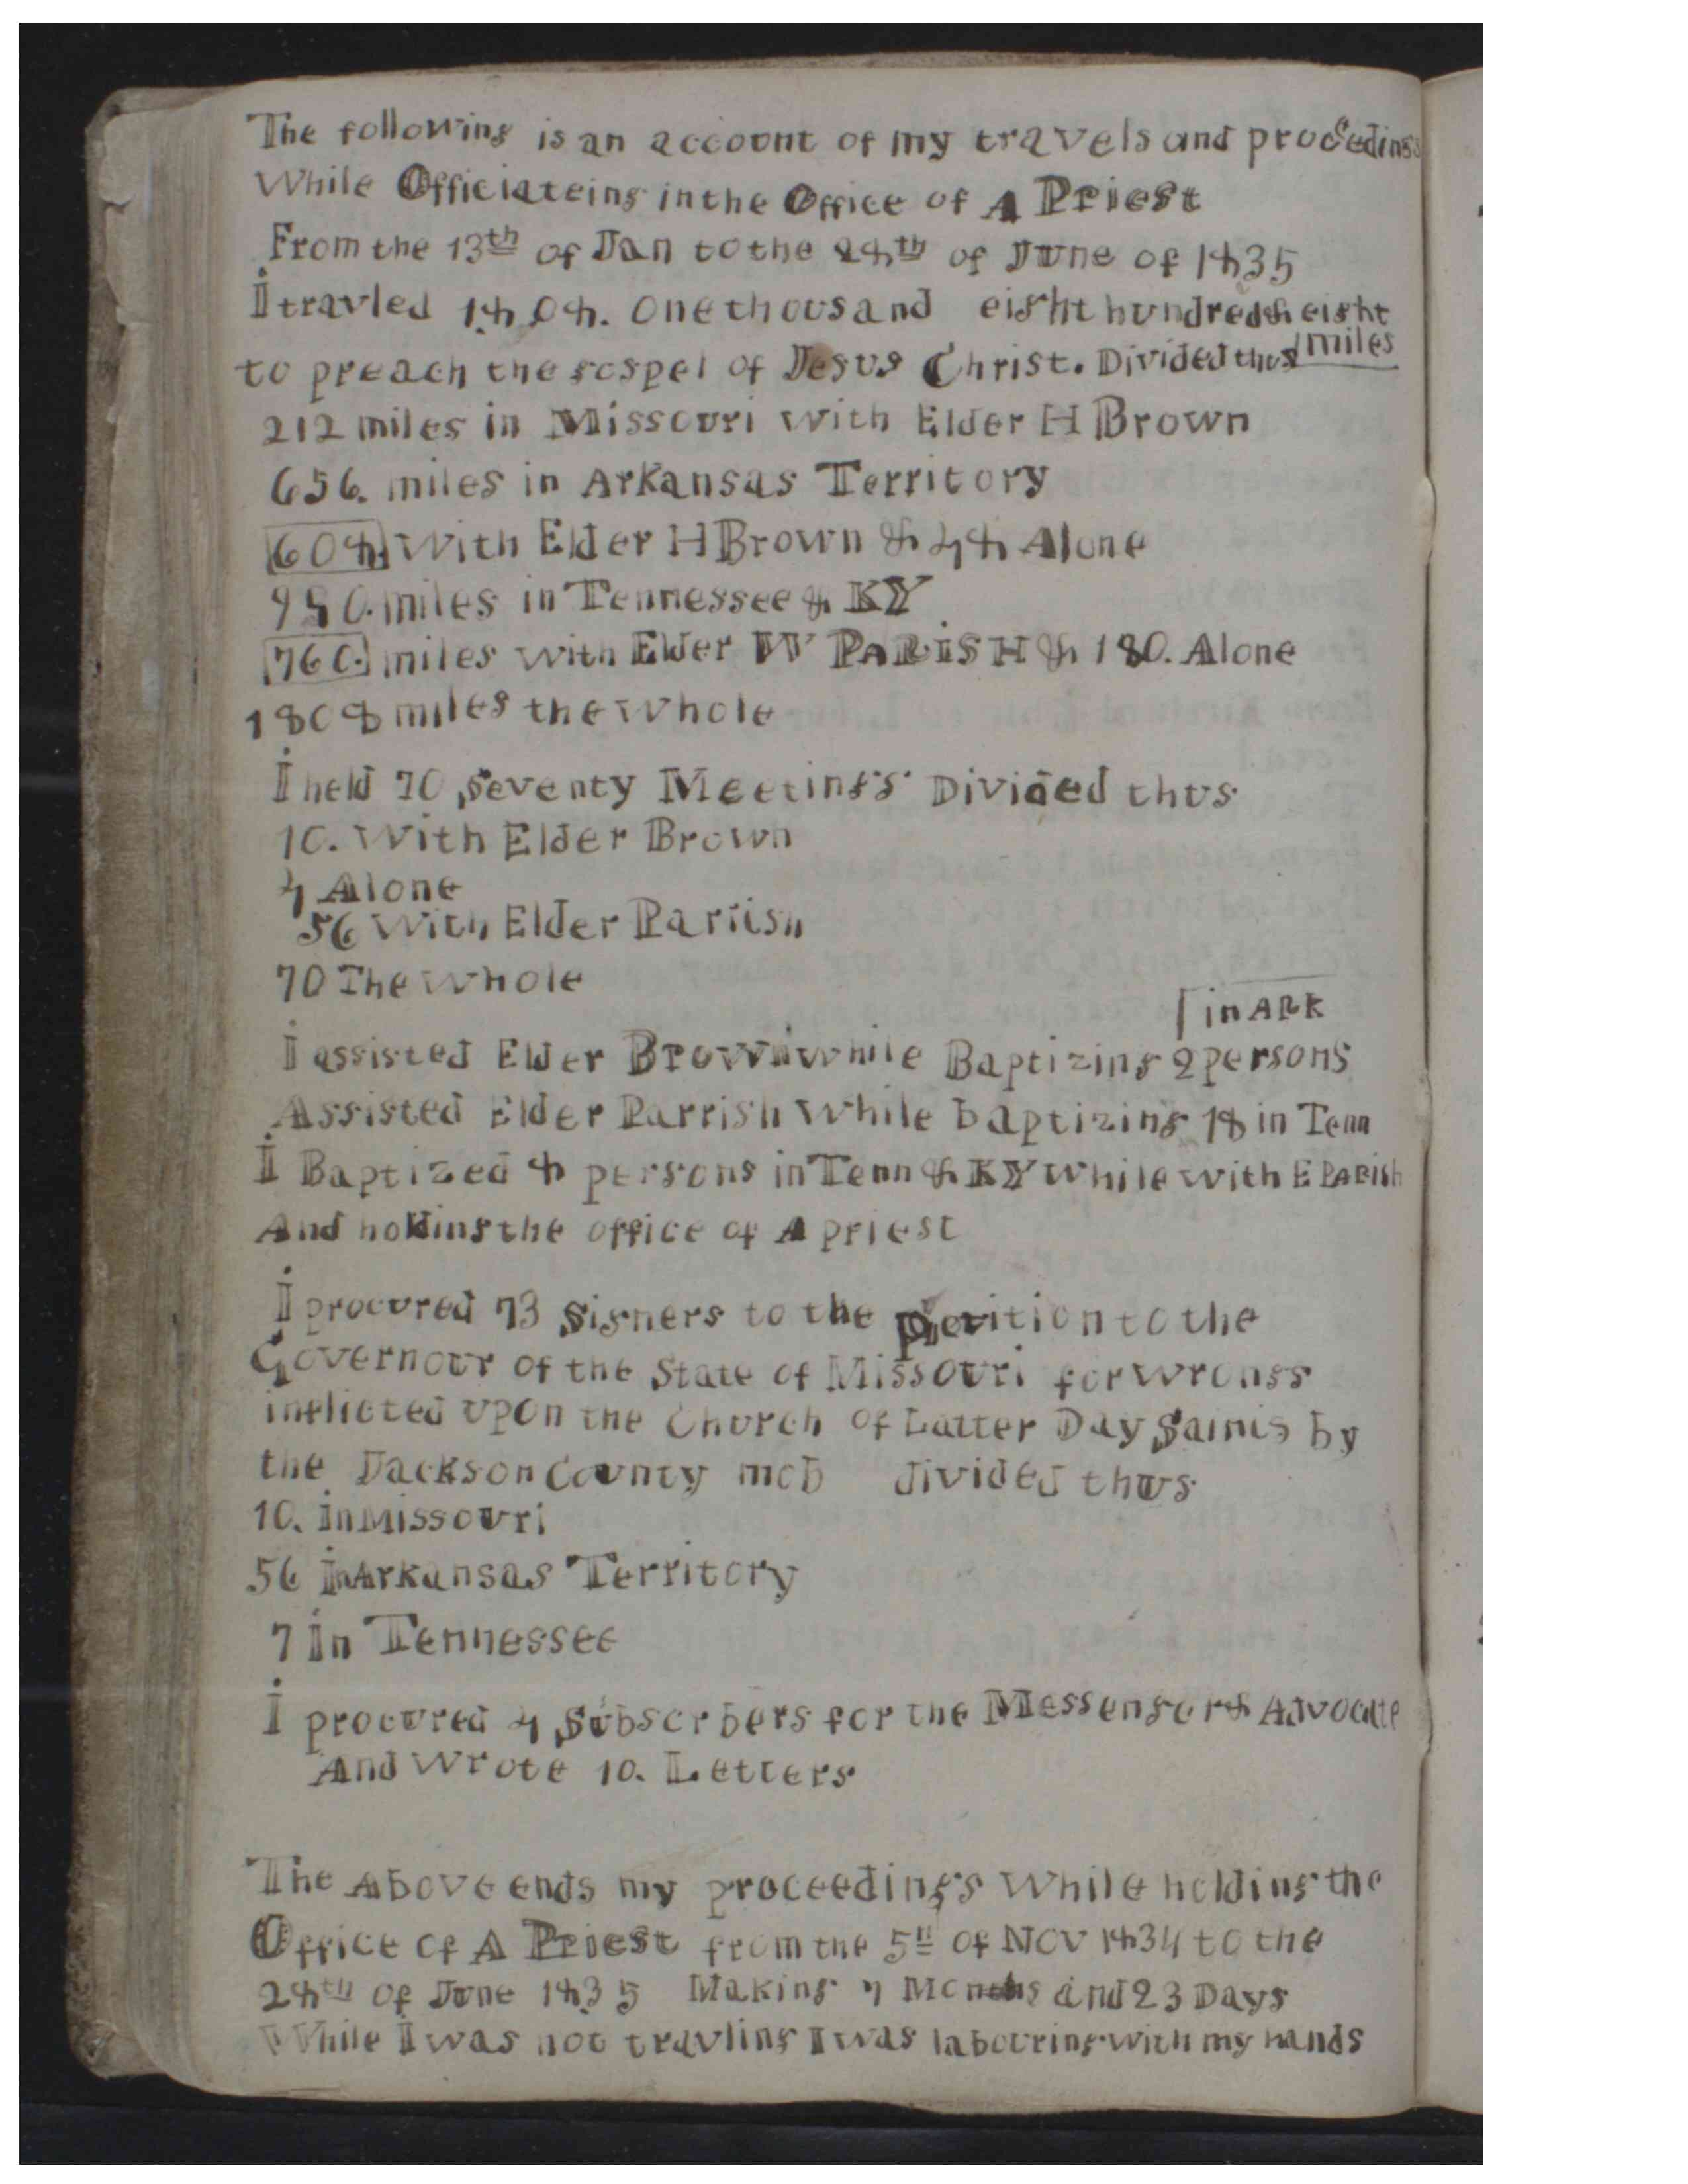 The following is an account of my travels and procedings
While Officiateing in the Office of A Priest
From the 13th of Jan to the 28th of June of 1835
I travled 1808. One thousand eight hundred & eight
to preach the gospel of Jesus Christ. Divided thus miles
212 miles in Missouri with Elder H Brown
656. miles in Arkansas Territory
608. With Elder H Brown & 48 Alone
940. miles in Tennessee & KY
760. miles with Elder W PARISH & 180. Alone
1808 miles the whole
I held 70 Seventy Meetings Divided thus
10. With Elder Brown
4 Alone
56 With Elder Parrish
70 The whole
in ARK
I assisted Elder Brown while Baptizing 2 persons
Assisted Elder Parrish While baptizing 18 in Tenn
I Baptized 8 persons in Tenn & KY while with E PARISh
And holding the office of A priest
I procured 73 Signers to the petition to the
Governour of the State of Missouri for wrongs
inflicted upon the Church of Latter Day Saints by
the Jackson County mob divided thus
10. in Missouri
56 in Arkansas Territory
7 in Tennessee
I procured 4 Subscrbers for the Messengor & Advocate
And wrote 10. Letters
The Above ends my proceedings While holding the
Office of A Priest from the 5th of NOV 1834 to the
28th of June 1835 Making 7 Months and 23 Days
While I was not travling I was labouring with my hands